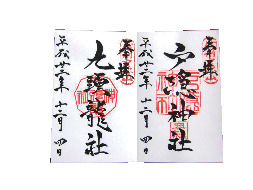 奉拝
戸隠神社
平成廿三年 十二月 四日
奉拝
九頭龍社
平成廿三年 十二月 四日